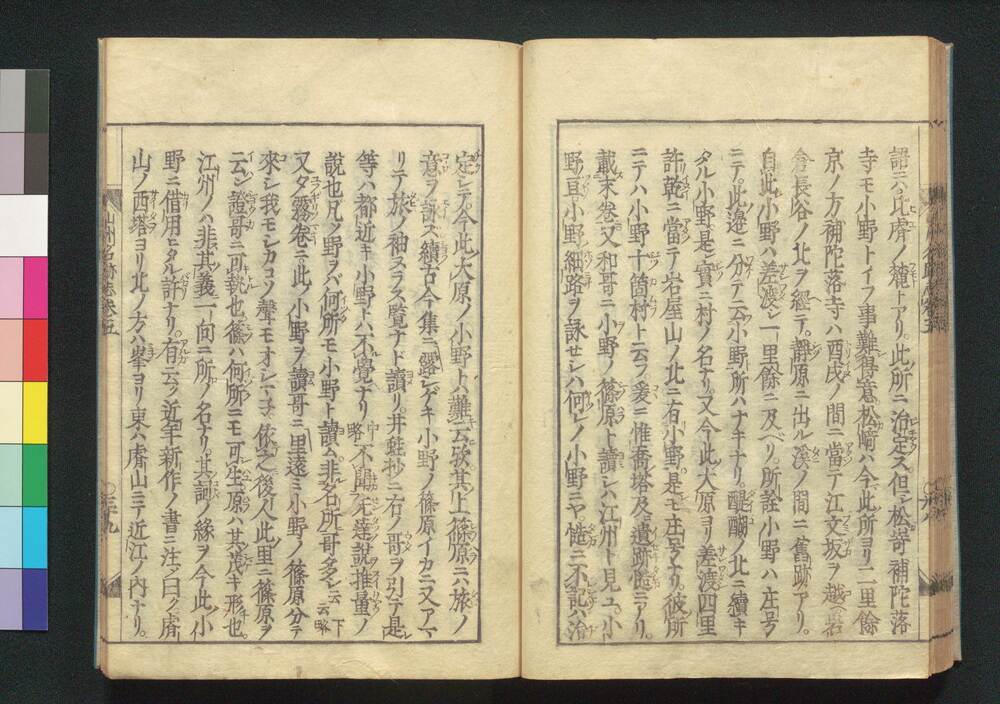 語ニハ比睿ノ麓トアリ。此所ニ治定ス。但シ松嵜補陀落
寺モ小野トイフ事難得意松嵜ハ今此所ヨリ二里餘
京ノ方補陀落寺ハ酉戌ノ間ニ當テ江文坂ヲ越ヘ岩
倉長谷ノ北ヲ經テ。靜原ニ出ル溪ノ間ニ舊跡アリ。
自此小野ハ差渡シ一里餘ニ及ベリ。所詮小野ハ庄号
ニテ此邊ニ分テ云小野所ハナキナリ。醍醐ノ北ニ續キ
タル小野是レ實ニ村ノ名ナリ。又今此大原ヨリ差渡四里
許乾ニ當テ岩屋山ノ北ニ有小野。是モ庄号ナリ彼所
ニテハ小野十箇村ト云フ爰ニ惟喬塔及遺跡慥ニアリ。
載末卷又和哥ニ小野ノ篠原ト讀シハ江州ト見ユ。小
野亘小野細路ヲ詠セシハ何レノ小野ニヤ慥ニ不記ハ治
定シテ。今此大原ノ小野トハ難云欤其上篠原ニハ旅ノ
意ヲ詠ス續古今集ニ露シゲキ小野ノ篠原イカニ又アマ
リテ旅ノ袖ヌラス覽ナド讀リ。井蛙抄ニ右ノ哥ヲ引テ是
等ハ都近キ小野トハ不覺ナリ中略不聞フ。先達說推量ノ
說也凡ソ野ヲバ何所モ小野ト讀ム非名所哥多シ云云下略
又夕霧卷ニ此ノ小野ヲ讀哥ニ里遠ミ小野ノ篠原分テ
來シ我モシカコソ聲モオシマネ依之後人此里ニ篠原ヲ
云シ證哥ニ可執也篠ハ何所ニモ可生原ハ其茂キ形也。
江州ノハ非其義一向ニ所ノ名ナリ。其詞ノ緣ヲ今此小
野ニ借用ヒタル許ナリ。有云フ近年新作ノ書ニ注メ曰ク睿
山ノ西塔ヨリ北ノ方ハ峯ヨリ東ハ睿山ニテ近江ノ內ナリ。
山州名跡志卷五